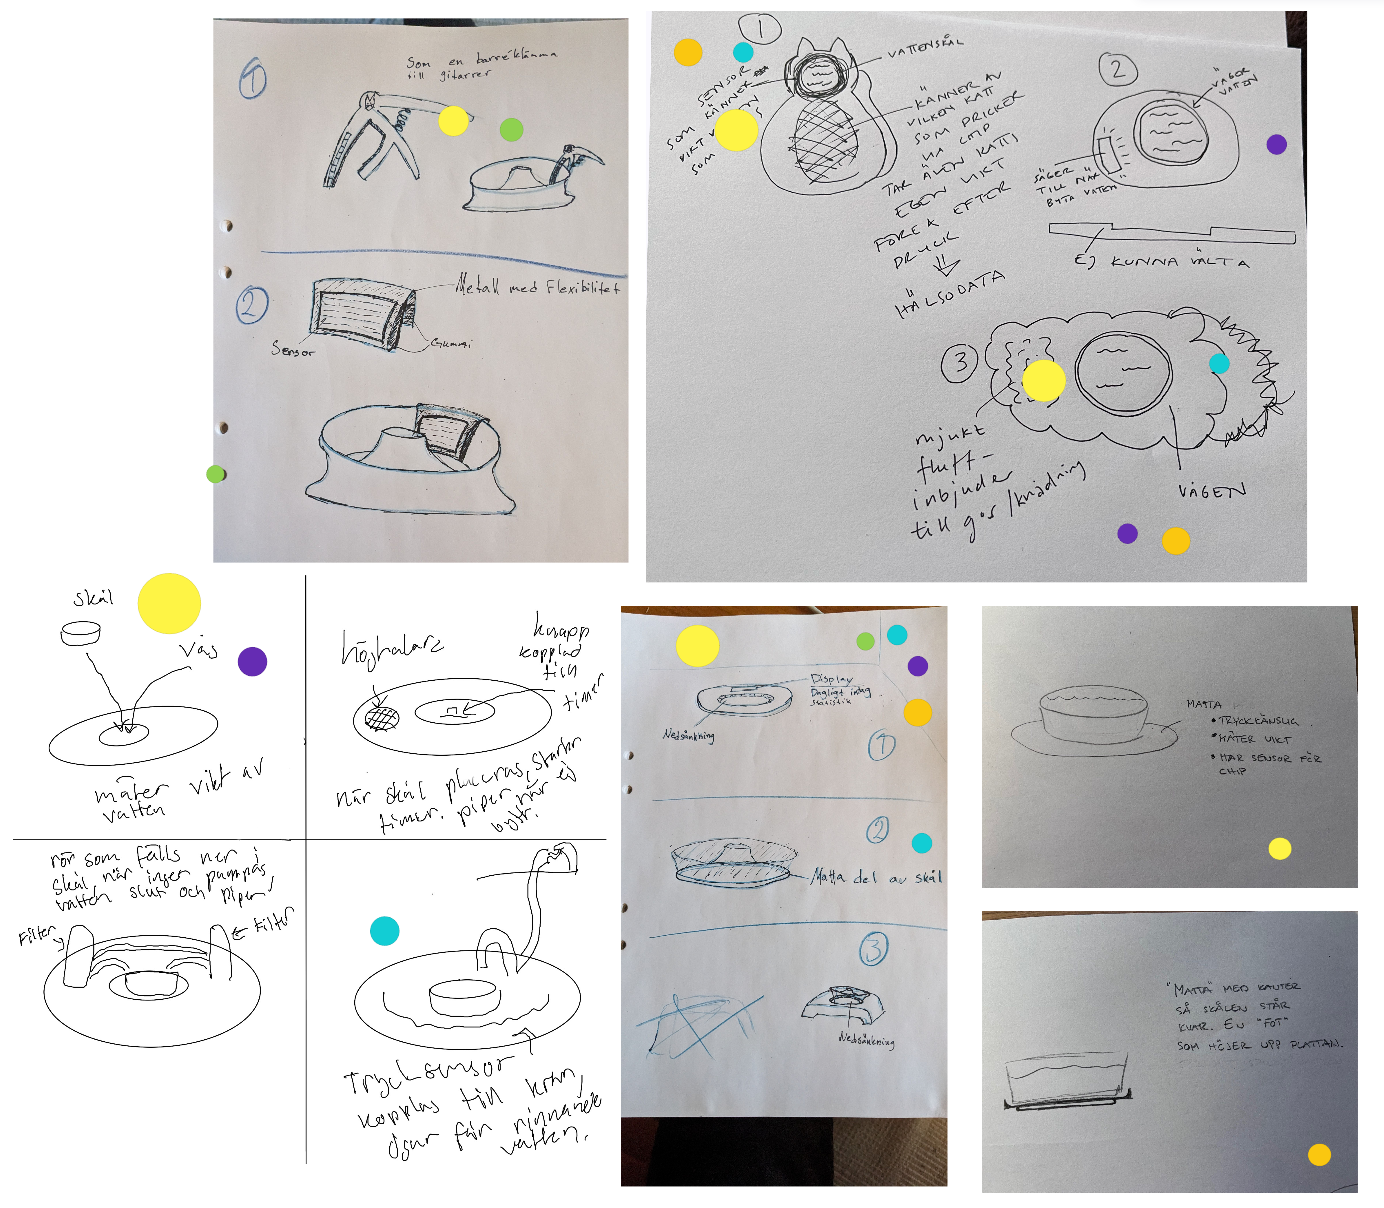 1
Som en barréklämma
till gitarrer
2
Metall med Flexibilitet
Sensor
Gummi
1
VATTENSKÅL
SENSOR
SOM KÄNNER
VIKT
SOM
KÄNNER AV
VILKEN KATT
SOM DRICKER
VIA CHIP
TAR ÄVEN KATTS
EGEN VIKT
FÖRE & EFTER
DRYCK
HÄLSODATA
2
VÄGER
VATTEN
SÄGER
TILL NÄR
BYTA VATTEN
EJ KUNNA VÄLTA
3
mjukt
fluff-
inbjuder
till gos/knådning
VÅGEN
skål
Våg
mäter vikt av
vatten
högtalare
knapp
kopplad
till
timer
när skål placeras, startar
timer. piper när ej
bytt.
rör som fälls ner i
skål när ingen pumpas,
vatten slut och piper
Filter
Filter
Trycksensor
kopplas till kran,
ögur för rinnande
vatten.
Display
Dagligt intag
statistik
Nedsänkning
1
2
Matta del av skål
3
Nedsänkning
MATTA
• TRYCKKÄNSLIG
• MÄTER VIKT
• HAR SENSOR FÖR
CHIP
"MATTA" MED KANTER
SÅ SKÅLEN STÅR
KVAR. EN "FOT"
SOM HÖJER UPP PLATTAN.